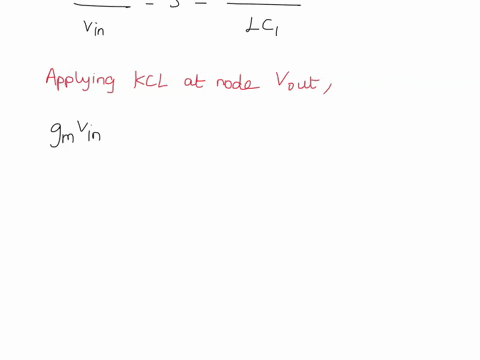 Vin = s = LC1
Applying KCL at node Vout,
gmVin